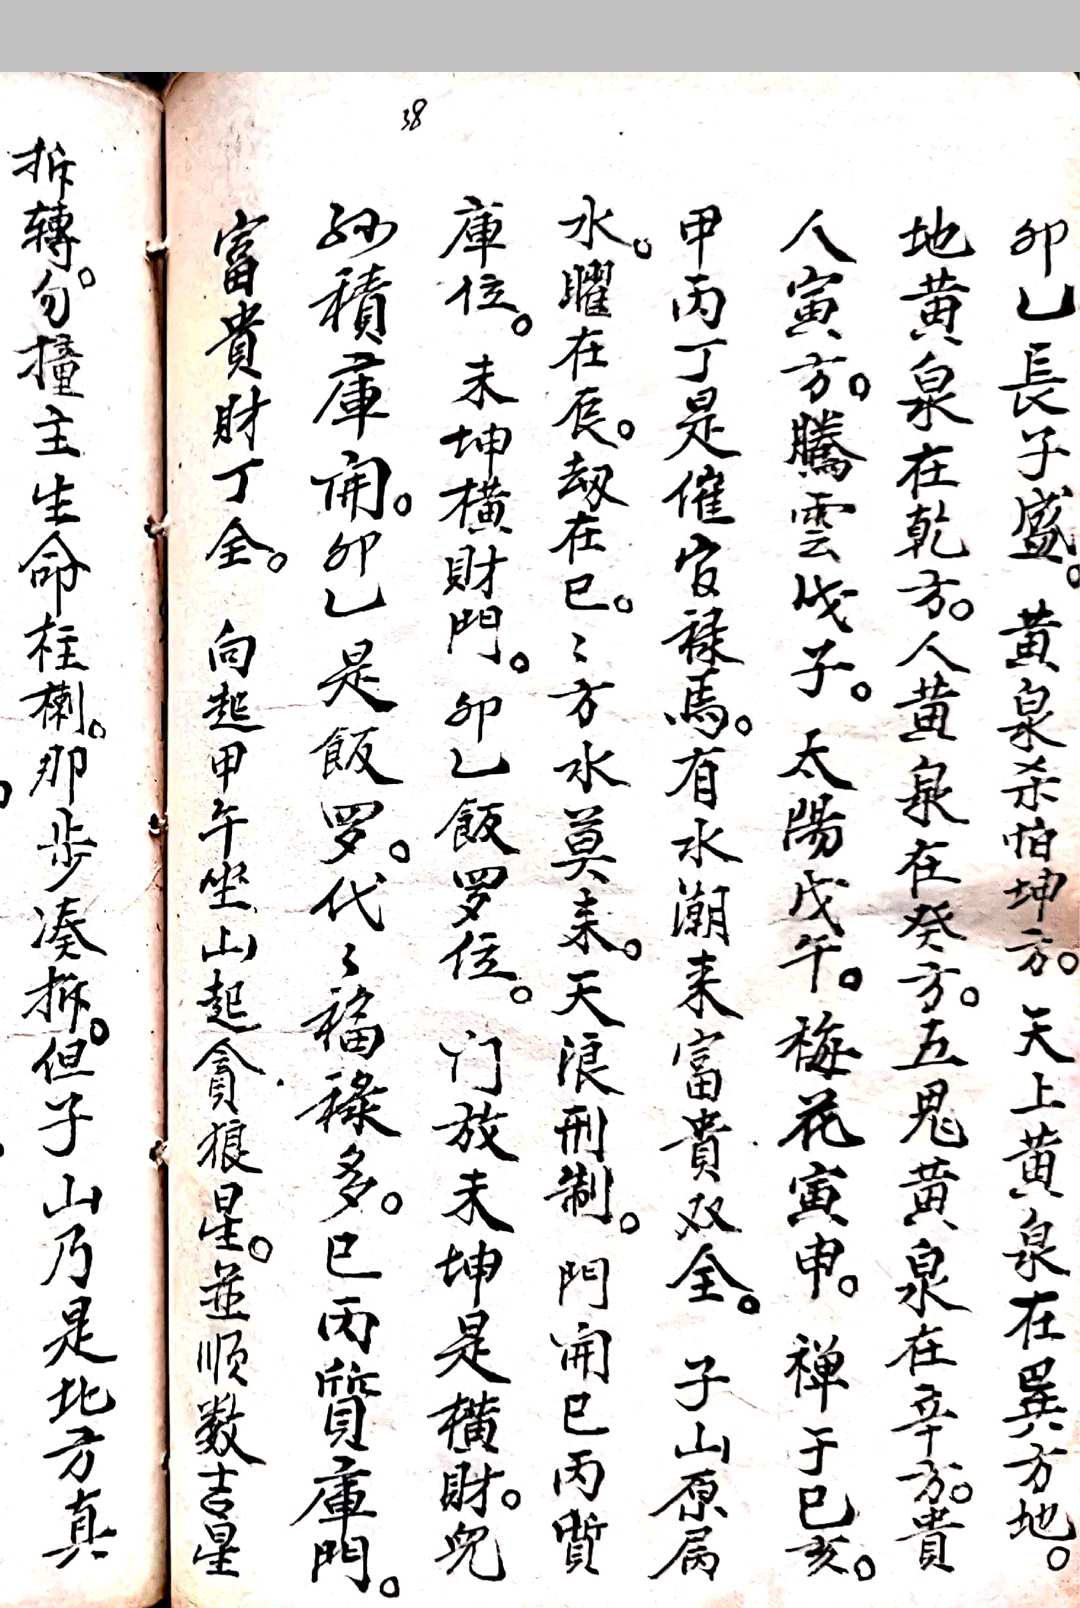 38
卯乙長子盛。黄泉杀怕坤方。天上黄泉在巽方地。
地黄泉在乾方。人黄泉在癸方。五鬼黄泉在辛方。貴
人寅方。騰雲戊子。太陽戊午。梅花寅申。禅于巳亥。
甲丙丁是催官禄馬。有水潮来富貴双全。子山原属
水。曜在辰。刼在巳。〻方水莫来。天浪刑制。門開巳丙質
庫位。未坤横財門。卯乙飯罗位。门放未坤是横財。児
孙積庫開。卯乙是飯罗。代〻福禄多。巳丙質庫門。
富貴財丁全。向起甲午坐山起貪狼星。並順数吉星
拆轉。勿撞主生命柱楋。那步凑拆。但子山乃是北方真